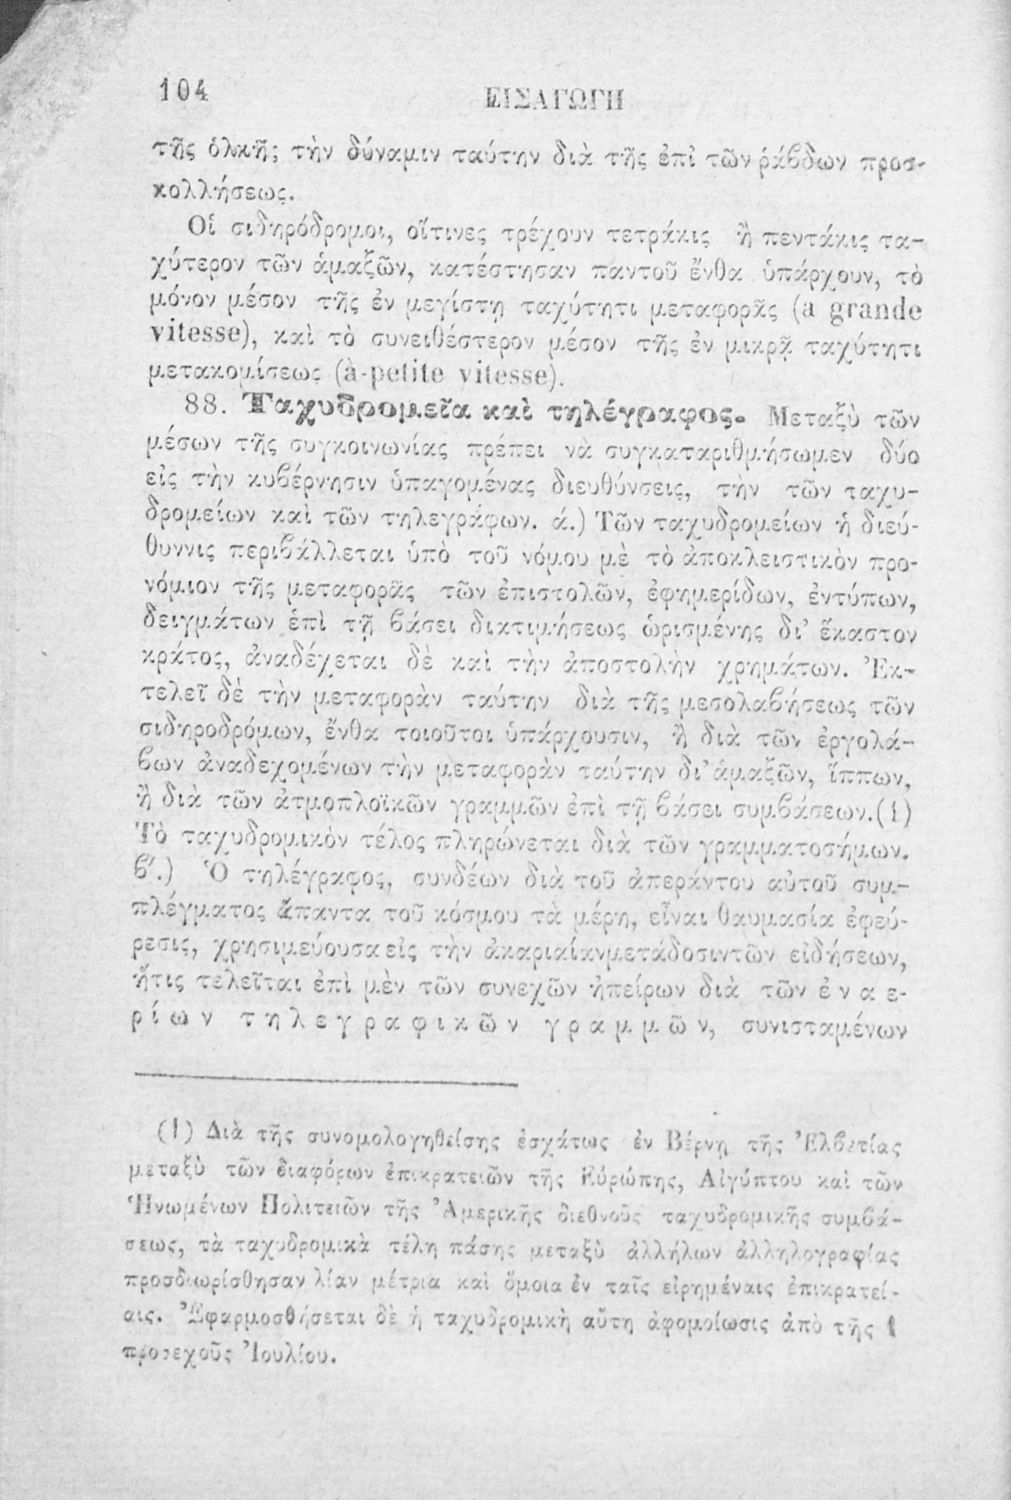 104
ΕΙΣΑΓΩΓΗ
τῆς ὁλκῆς τὴν δύναμιν ταύτην διὰ τῆς ἐπὶ τῶν ῥάβδων προσ-
κολλήσεως.
Οἱ σιδηρόδρομοι, οἵτινες τρέχουν τετράκις ἢ πεντάκις τα-
χύτερον τῶν ἁμαξῶν, κατέστησαν παντοῦ ἔνθα ὑπάρχουν, τὸ
μόνον μέσον τῆς ἐν μεγίστῃ ταχύτητι μεταφορᾶς (a grande
vitesse), καὶ τὸ συνειθέστερον μέσον τῆς ἐν μικρᾷ ταχύτητι
μετακομίσεως (à-petite vitesse).
88. Ταχυδρομεῖα καὶ τηλέγραφος. Μεταξὺ τῶν
μέσων τῆς συγκοινωνίας πρέπει νὰ συγκαταριθμήσωμεν δύο
εἰς τὴν κυβέρνησιν ὑπαγομένας διευθύνσεις, τὴν τῶν ταχυ-
δρομείων καὶ τῶν τηλεγράφων. ά.) Τῶν ταχυδρομείων ἡ διεύ-
θυννις περιβάλλεται ὑπὸ τοῦ νόμου μὲ τὸ ἀποκλειστικὸν προ-
νόμιον τῆς μεταφορᾶς τῶν ἐπιστολῶν, ἐφημερίδων, ἐντύπων,
δειγμάτων ἐπὶ τῇ βάσει διατιμήσεως ὡρισμένης δι᾽ ἕκαστον
κράτος, ἀναδέχεται δὲ καὶ τὴν ἀποστολὴν χρημάτων. Ἐκ-
τελεῖ δὲ τὴν μεταφορὰν ταύτην διὰ τῆς μεσολαβήσεως τῶν
σιδηροδρόμων, ἔνθα τοιοῦτοι ὑπάρχουσιν, ἢ διὰ τῶν ἐργολά-
βων ἀναδεχομένων τὴν μεταφορὰν ταύτην δι᾽ ἁμαξῶν, ἵππων,
ἢ διὰ τῶν ἀτμοπλοϊκῶν γραμμῶν ἐπὶ τῇ βάσει συμβάσεων.(1)
Τὸ ταχυδρομικὸν τέλος πληρώνεται διὰ τῶν γραμματοσήμων.
β′.) Ὁ τηλέγραφος, συνδέων διὰ τοῦ ἀπεράντου αὐτοῦ συμ-
πλέγματος ἅπαντα τοῦ κόσμου τὰ μέρη, εἶναι θαυμασία ἐφεύ-
ρεσις, χρησιμεύουσα εἰς τὴν ἀκαριαίανμετάδοσιντῶν εἰδήσεων,
ἥτις τελεῖται ἐπὶ μὲν τῶν συνεχῶν ἠπείρων διὰ τῶν ἐναε-
ρίων τηλεγραφικῶν γραμμῶν, συνισταμένων
(1) Διὰ τῆς συνομολογηθείσης ἐσχάτως ἐν Βέρνῃ τῆς Ἐλβετίας
μεταξὺ τῶν διαφόρων ἐπικρατειῶν τῆς Εὐρώπης, Αἰγύπτου καὶ τῶν
Ἡνωμένων Πολιτειῶν τῆς Ἀμερικῆς διεθνοῦς ταχυδρομικῆς συμβά-
σεως, τὰ ταχυδρομικὰ τέλη πάσης μεταξὺ ἀλλήλων ἀλληλογραφίας
προσδιωρίσθησαν λίαν μέτρια καὶ ὅμοια ἐν ταῖς εἰρημέναις ἐπικρατεί-
αις. Ἐφαρμοσθήσεται δὲ ἡ ταχυδρομικὴ αὕτη ἀφομοίωσις ἀπὸ τῆς 1
προσεχοῦς Ἰουλίου.